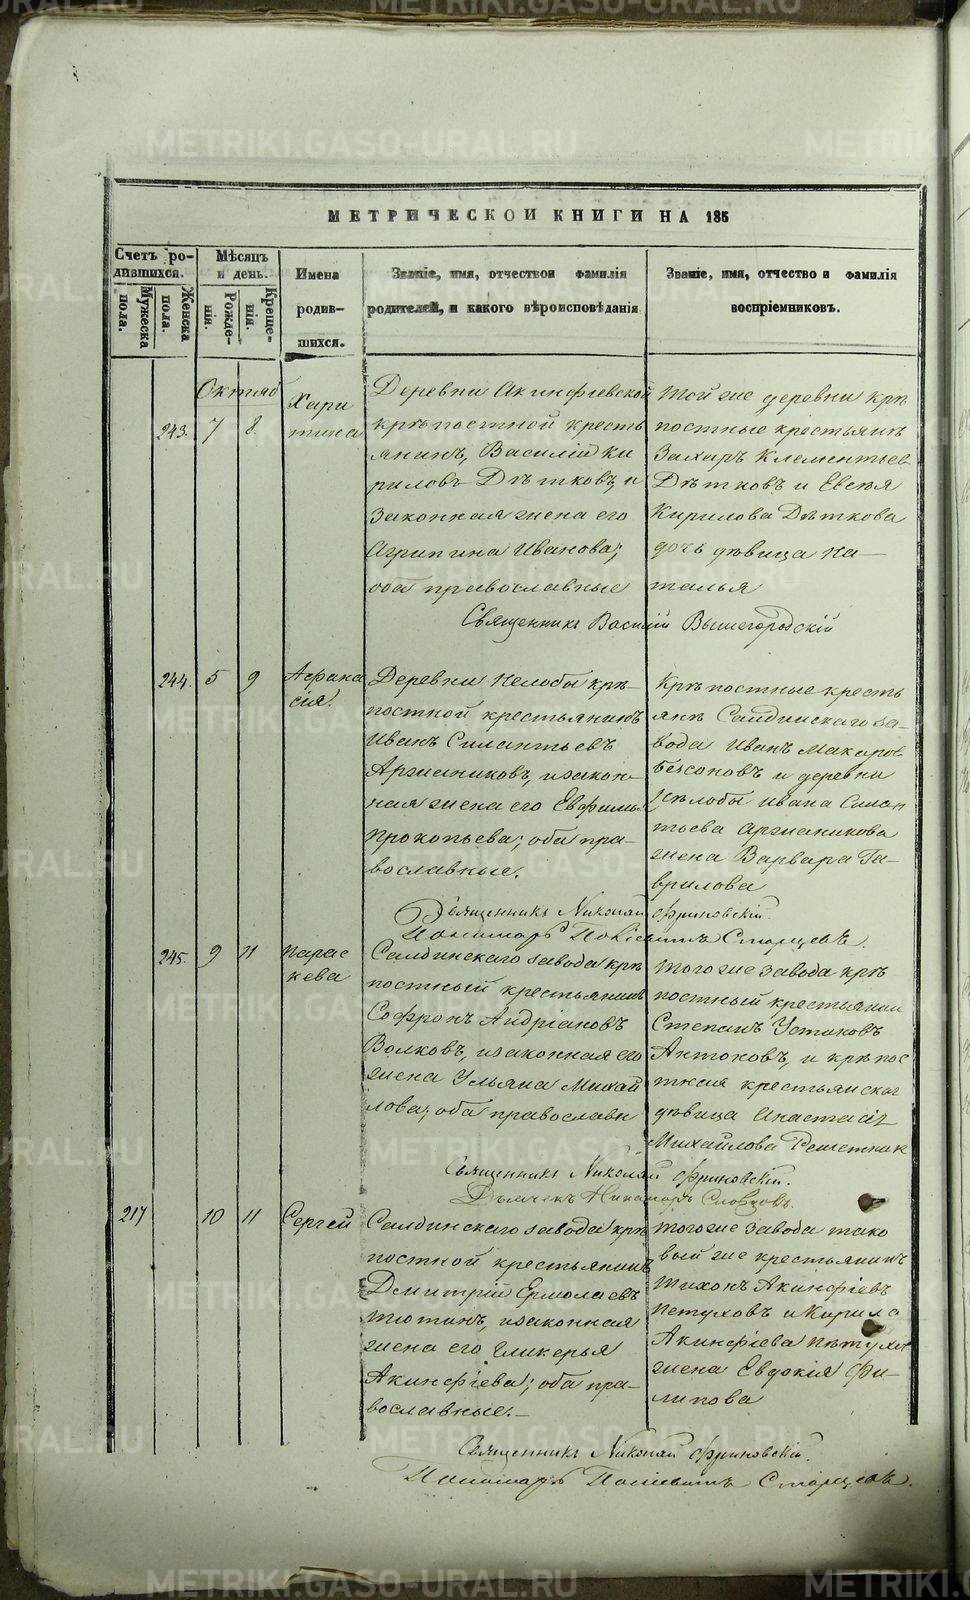 МЕТРИЧЕСКОЙ КНИГИ НА 185
Счетъ ро-
дившихся.
Мужеска
пола.
Женска
пола.
Мѣсяцъ
и день.
Рожде-
нiя.
Креще-
нiя.
Имена
родив-
шихся.
Званiе, имя, отчество и фамилiя
родителей, и какого вѣроисповѣданiя
Званiе, имя, отчество и фамилiя
воспрiемниковъ.
Октяб
243. 7 8.
Хари
тина
Деревни Акинфiевской
крѣпостной кресть
янинъ, Василiй Ки
риловъ Дѣтковъ, и
законная жена его
Агрипина Иванова;
оба православные
Той же деревни крѣ
постные крестьянъ
Захаръ Клементьев
Дѣтковъ и
Кирилова Дѣткова
дочь дѣвица На—
талья
Священникъ Василiй Вышегородскiй
244. 5 9
Афана
сiя.
Деревни Нелобы крѣ—
постной крестьянинъ
Иванъ Силантьевъ
Аржаниковъ, и закон—
ная жена его Евфимья
Прокопьева; оба пра—
вославные.
Крѣпостные кресть
янъ Салдинскаго за—
вода Иванъ Макаров
Безсоновъ и деревни
Нелобы Ивана Силан
тьева Аржаникова
жена Варвара Га—
врилова
Священникъ Николай Фриновскiй.
Пономарь Старцевъ.
245. 9 11
Парас
кева
Салдинскаго завода крѣ
постный крестьянинъ
Софронъ Андрiановъ
Волковъ, и законная его
жена Ульяна Михай
лова; оба православн
Того же завода крѣ
постный крестьянин
Степанъ Устиновъ
Антоновъ, и крѣпос
тная крестьянская
дѣвица Анастасiя
Михайлова Решетник
Священникъ Николай Фриновскiй.
Дьячекъ Никаноръ Словцовъ.
217 10 11
Сергей
Салдинскаго завода крѣ
постной крестьянинъ
Дмитрiй Ермолаевъ
Тютинъ, и законная
жена его Гликерья
Акинфiева; оба пра—
вославные.—
Того же завода тако
вый же крестьянинъ
Тихонъ Акинфiевъ
Петуховъ и Кирила
Акинфiева Пѣтухов
жена Евдокiя Фи—
липова
Священникъ Николай Фриновскiй.
Пономарь Старцевъ.
METRIKI.GASO-URAL.RU